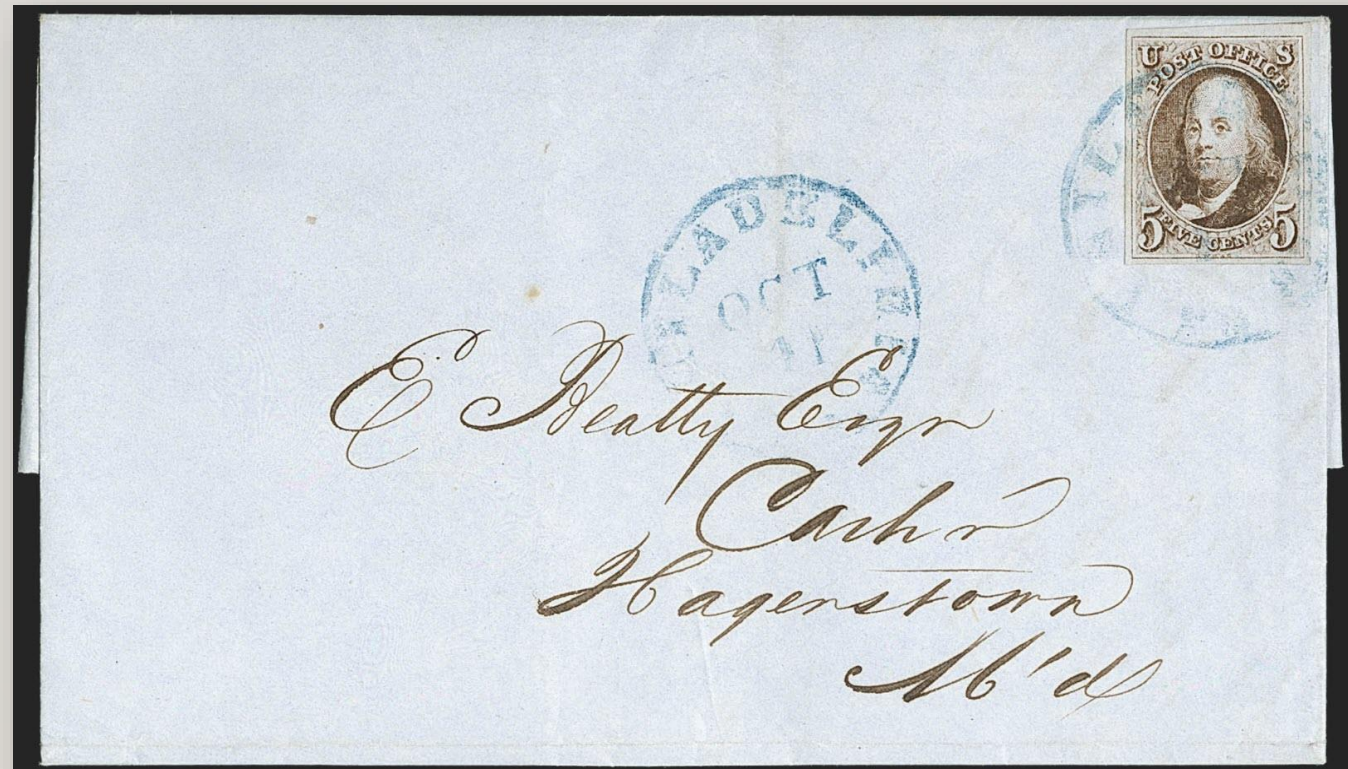 U S
POST OFFICE
5 FIVE CENTS 5
PHILADELPHIA
OCT
11
E Beatty Esqr
Cashr
Hagerstown
M'd